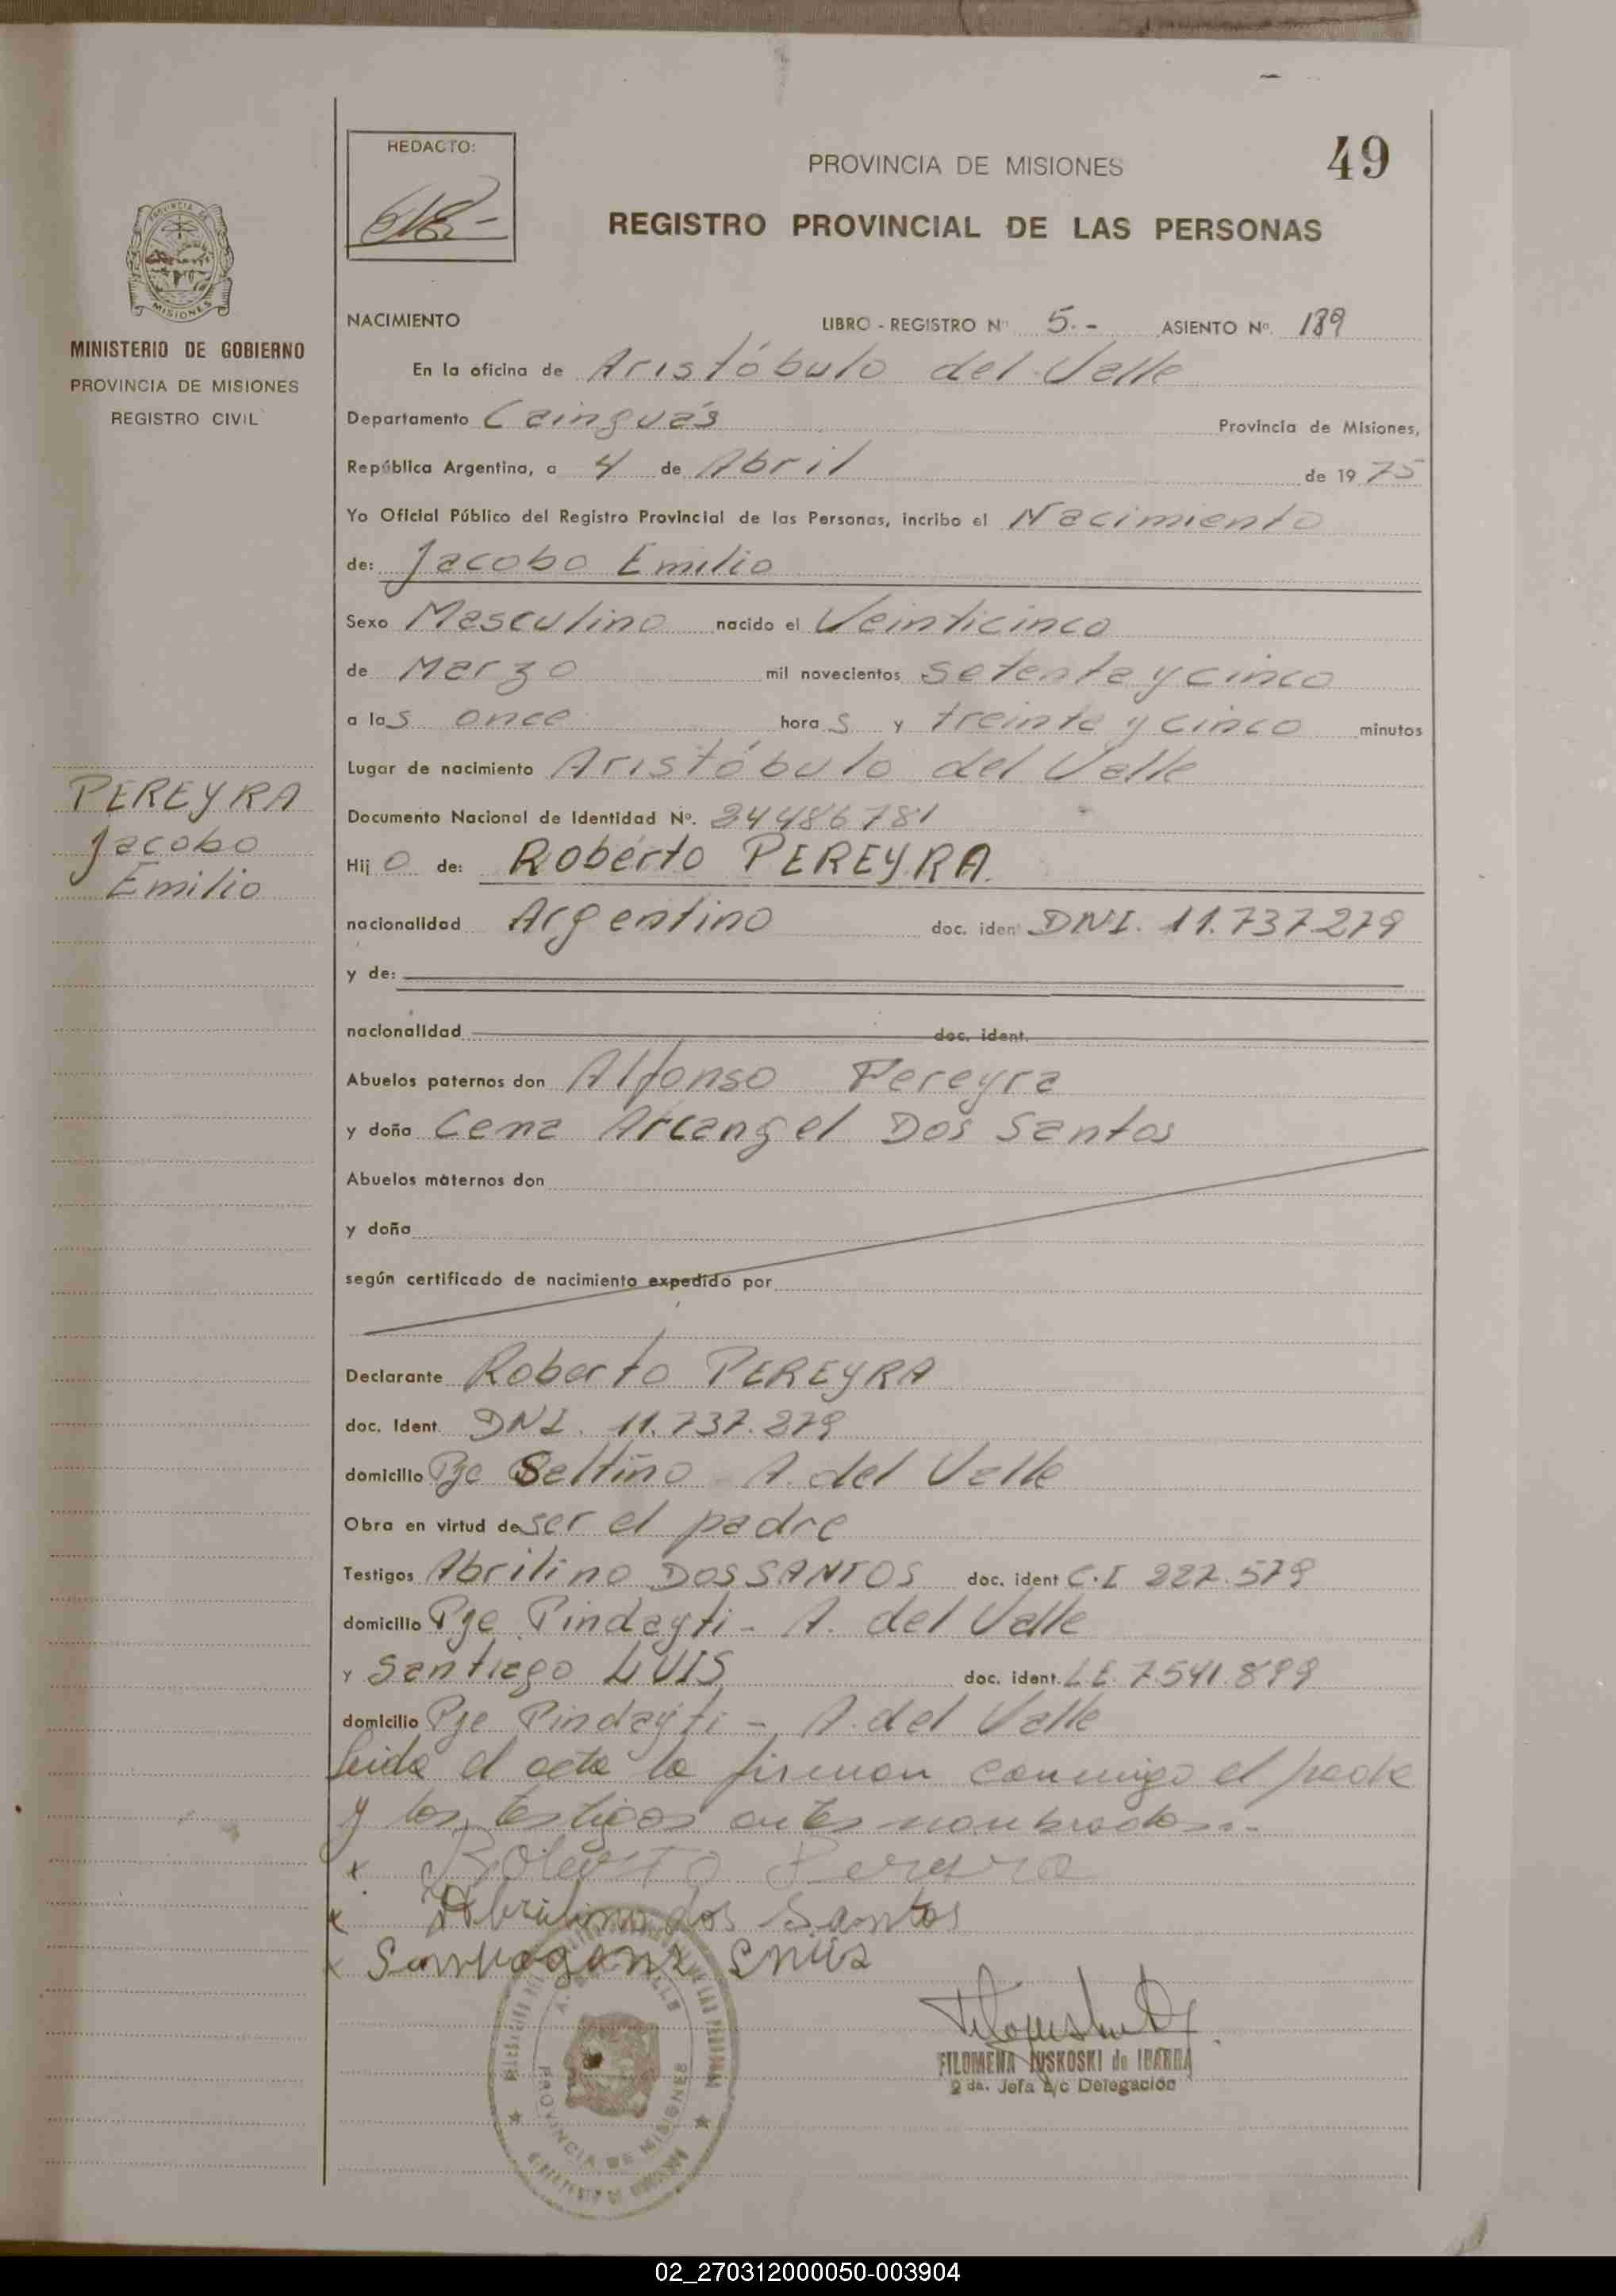 49
REDACTO:
PROVINCIA DE MISIONES
REGISTRO PROVINCIAL DE LAS PERSONAS
PROVINCIA DE
MISIONES
MINISTERIO DE GOBIERNO
PROVINCIA DE MISIONES
REGISTRO CIVIL
NACIMIENTO LIBRO - REGISTRO Nº 5.- ASIENTO Nº. 189
En la oficina de Aristóbulo del Valle
Departamento Cainguás Provincia de Misiones,
República Argentina, a 4 de Abril de 1975
Yo Oficial Público del Registro Provincial de las Personas, incribo el Nacimiento
de: Jacobo Emilio
Sexo Masculino nacido el Veinticinco
de Marzo mil novecientos setenta y cinco
a las once horas y treinta y cinco minutos
Lugar de nacimiento Aristóbulo del Valle
PEREYRA
Jacobo
Emilio
Documento Nacional de Identidad Nº. 24486781
Hijo de: Roberto PEREYRA.
nacionalidad Argentino doc. iden DNI. 11.737.279
y de:
nacionalidad doc. ident.
Abuelos paternos don Alfonso Pereyra
y doña Cema Arcangel Dos Santos
Abuelos maternos don
y doña
según certificado de nacimiento expedido por
Declarante Roberto PEREYRA
doc. Ident. DNI. 11.737.279
domicilio Pje Seltino A. del Valle
Obra en virtud de ser el padre
Testigos Abrilino DOS SANTOS doc. ident C.I 227.579
domicilio Pje Pindayti - A. del Valle
y Santiago LUIS doc. ident. L.E. 7.541.899
domicilio Pje Pindayti - A. del Valle
Leida el acta la firman conmigo el padre
y los testigos antes nombrados.-
x Roberto Pereyra
x Abrilino dos Santos
x
PROVINCIA DE MISIONES
FILOMENA JUSKOSKI de IBARRA
2 da. Jefa a/c Delegación
02_270312000050-003904